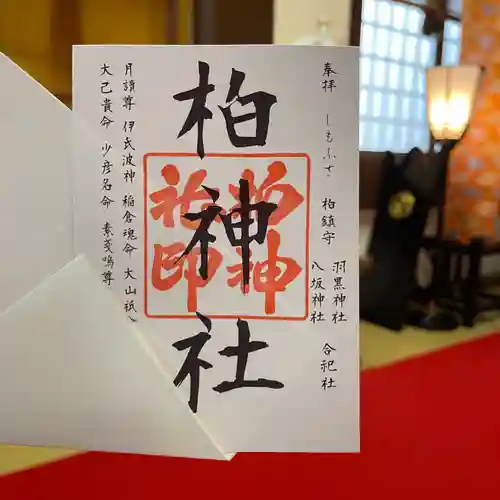 奉拝 しもふさ 柏鎮守
羽黒神社
八坂神社
合祀社
柏神社
柏神
社印
月讀尊 伊氐波神 稲倉魂命 大山祇
大己貴命 少彦名命 素戔嗚尊